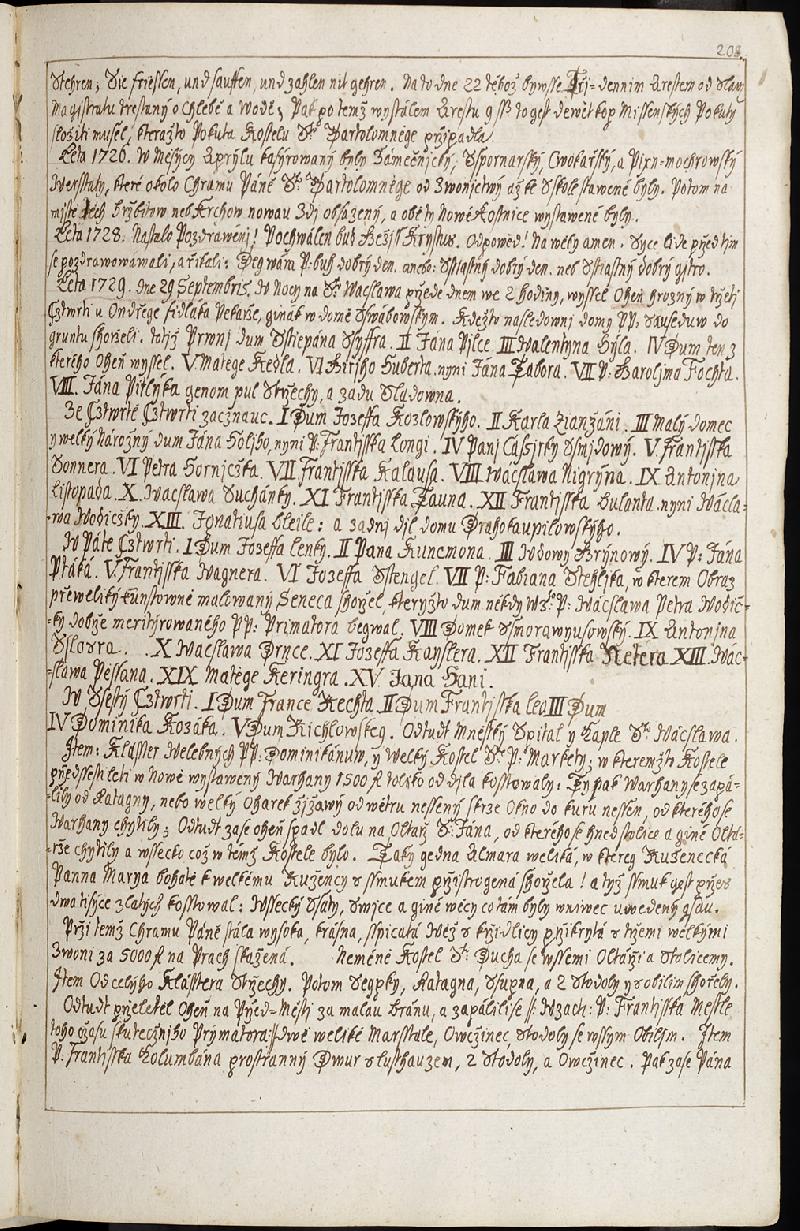 208.
Stehren; Sie frieslen, und sauffen, und zahlen nit gehren. Na to dne 22 téhož byw sse Tři-dennim Arestem od Slaw:
Magistratu trestaný o Chlebě a Wodě; Pak po temž wystálem Arestu 9 ss to gest dewět kop Missenských Pokuty
složiti musel, kterážto Pokuta Kostelu Sv. Bartolomněge připadla.
Léta 1726. W Měsýcy Aprýlu kasýrowaný byly Zámečnický, Sspornarský, Cwokařský, a Pixn-mochrowský
Werstaty, které okolo Chramu Páně Sv. Bartolomněge od Zwonice až ke Sskole stawené byly. Potom na
rajste těch Hržbitow neb Krchow nowau Zdj obsazený, a obě ty Nowé Kosnice wystawené byly.
Léta 1728. Nastalo Pozdrawenj! Pochwálen bud Gežjss Krystus. Odpowěd! Na wěky amen. Sýce lidé před tim
se pozdrawowawali, a řikali: Deg wám P: buh dobrý den. anebo: Sstiastný dobrý den. neb Sstiastný dobrý gitro.
Léta 1729. dne 29 Septembris, to Nocy na Sv. Wacslawa přjede dnem we 2 hodiny, wyssel Oheň hrozný w třetj
Cžtwrti u Ondřege Fidláka Pekaře, ginák w domě Sswábowským. Kdežto následownj domy PP: Sausedůw do
gruntu shořeli. totiž Prwnj dům Sstiepána Ssyffra. II Jána Pilce. III Walentyna Býla. IV Dum ten z
kterého Oheň wyssel. V Matěge Kedla. VI Giržjho Huberta. nyni Jána Tábora. VII P: Karoljma Fochta.
VIII. Jána Pitlyka genom pul Střechy, a zádu Sladowna.
Ze Cžtwrté Cžtwrti začžnauc. I Dum Jozeffa Kozlowského. II Karla Lianžáni. III Malý domec
y welký Nárožný dum Jána Hölzho, nyni P: Frantisska Longi. IV Panj Cassyrky Snjdowý. V. Frantisska
Sonnera. VI Petra Hornjczka. VII Frantisska Kalausa. VIII Wácslawa Nigrýna. IX Antonjna
Listopada. X. Wacslawa Suchánky. XI Frantisska Fauna. XII Frantisska Culanta. nyni Wácla-
wa Wodiczky. XIII. Ignatiusa Bleile: a zadnj djl domu Drahokaupilowskýho.
W Páté Cžtwrti. I Dum Jozeffa Lenky. II Pana Kuncmona. III Wdowy Brýnowý. IV P: Jána
Ptáka. V. Frantisska Wagnera. VI Jozeffa Sstengel. VII P: Fabiana Stehljka, w kterem Obraz
přewelikj kunstowně malowaný Seneca shořel, kteryžto dum někdy Ws: P: Wácslawa Petra Wodicž-
ky dobrže meritýrowaného PP: Primátora begwal. VIII Domek Ssmorawyusowský. IX Antonina
Sslowra. . . X Wacslawa Drnce. XI Jozeffa Kanslera. XII Frantisska Netera XIII. Wác-
slawa Pessana. XIX Matěge Keringra. XV Jana Hani.
W Ssesty Cžtwrti. I Dum France Kechta. II Dum Frantisska Leo III Dum
IV Dominika Kozáka. V Dum Richlowskeg. Odtud Mnestký Sspitál y Kaple Sv. Wácslawa.
Item: Klásster Welebných PP: Dominikánuw, y Welký Kostel Sv. P: Markety; w kteremžto Kostele
předssesti leti w Nowě wystawený Warhany 1500 fl toliko od djla kosstowaly. Ty pak Warhany se zapá-
lily od Katagny, nebo welký Oharek žjžawý od wětru nessený skrze Okno do kuru nessen, od kterého se
Warhany chytily; Odtud zase oheň spadl dolu na Oltarž Sv. Jána, od kterého se hned stolice a giné Oltá-
rže chytily a wssecko, což w témž Kostele bylo. Taky gedna Almara weliká, w ktereg Růženecká
Panna Marya bohatě k welkému Růžency s ssmukem přžistrogená shořela! a tyž ssmuk gest přzes
dwa tisýce zlatých kosstowal: Wssecký Ssaty, Swjce a giné wěcy co tám byly wniwec uwedený gsau.
Přži temž Chramu Páně stála wysoká, krásna, sspicatá Wěž s Břždlicy přžikrytá s třzemi welkými
Zwoni za 5000 fl na Prach skažená. Neméně Kostel Sv. Ducha se wssemi Oltáři a Stolicemy.
Item Od celého Klásstera Střechy. Potom Segpky, Ratagna, Ssupna, a 2 Stodoly y s obilim shořely.
Odtud přeletěl Oheň na Před-Městj za malau bránu, a zapálil se P: Wzach: P: Frantisska Mestle,
toho cžasu skutecžnjho Prymátora dwě weliké Marsstale, Owcžinec, Stodoly se wssým Obilim. Item
P. Frantisska Kolumbána prostranný Dwur s Lusthauzem, 2 Stodoly, a Owcžinec. Pak zase Pána